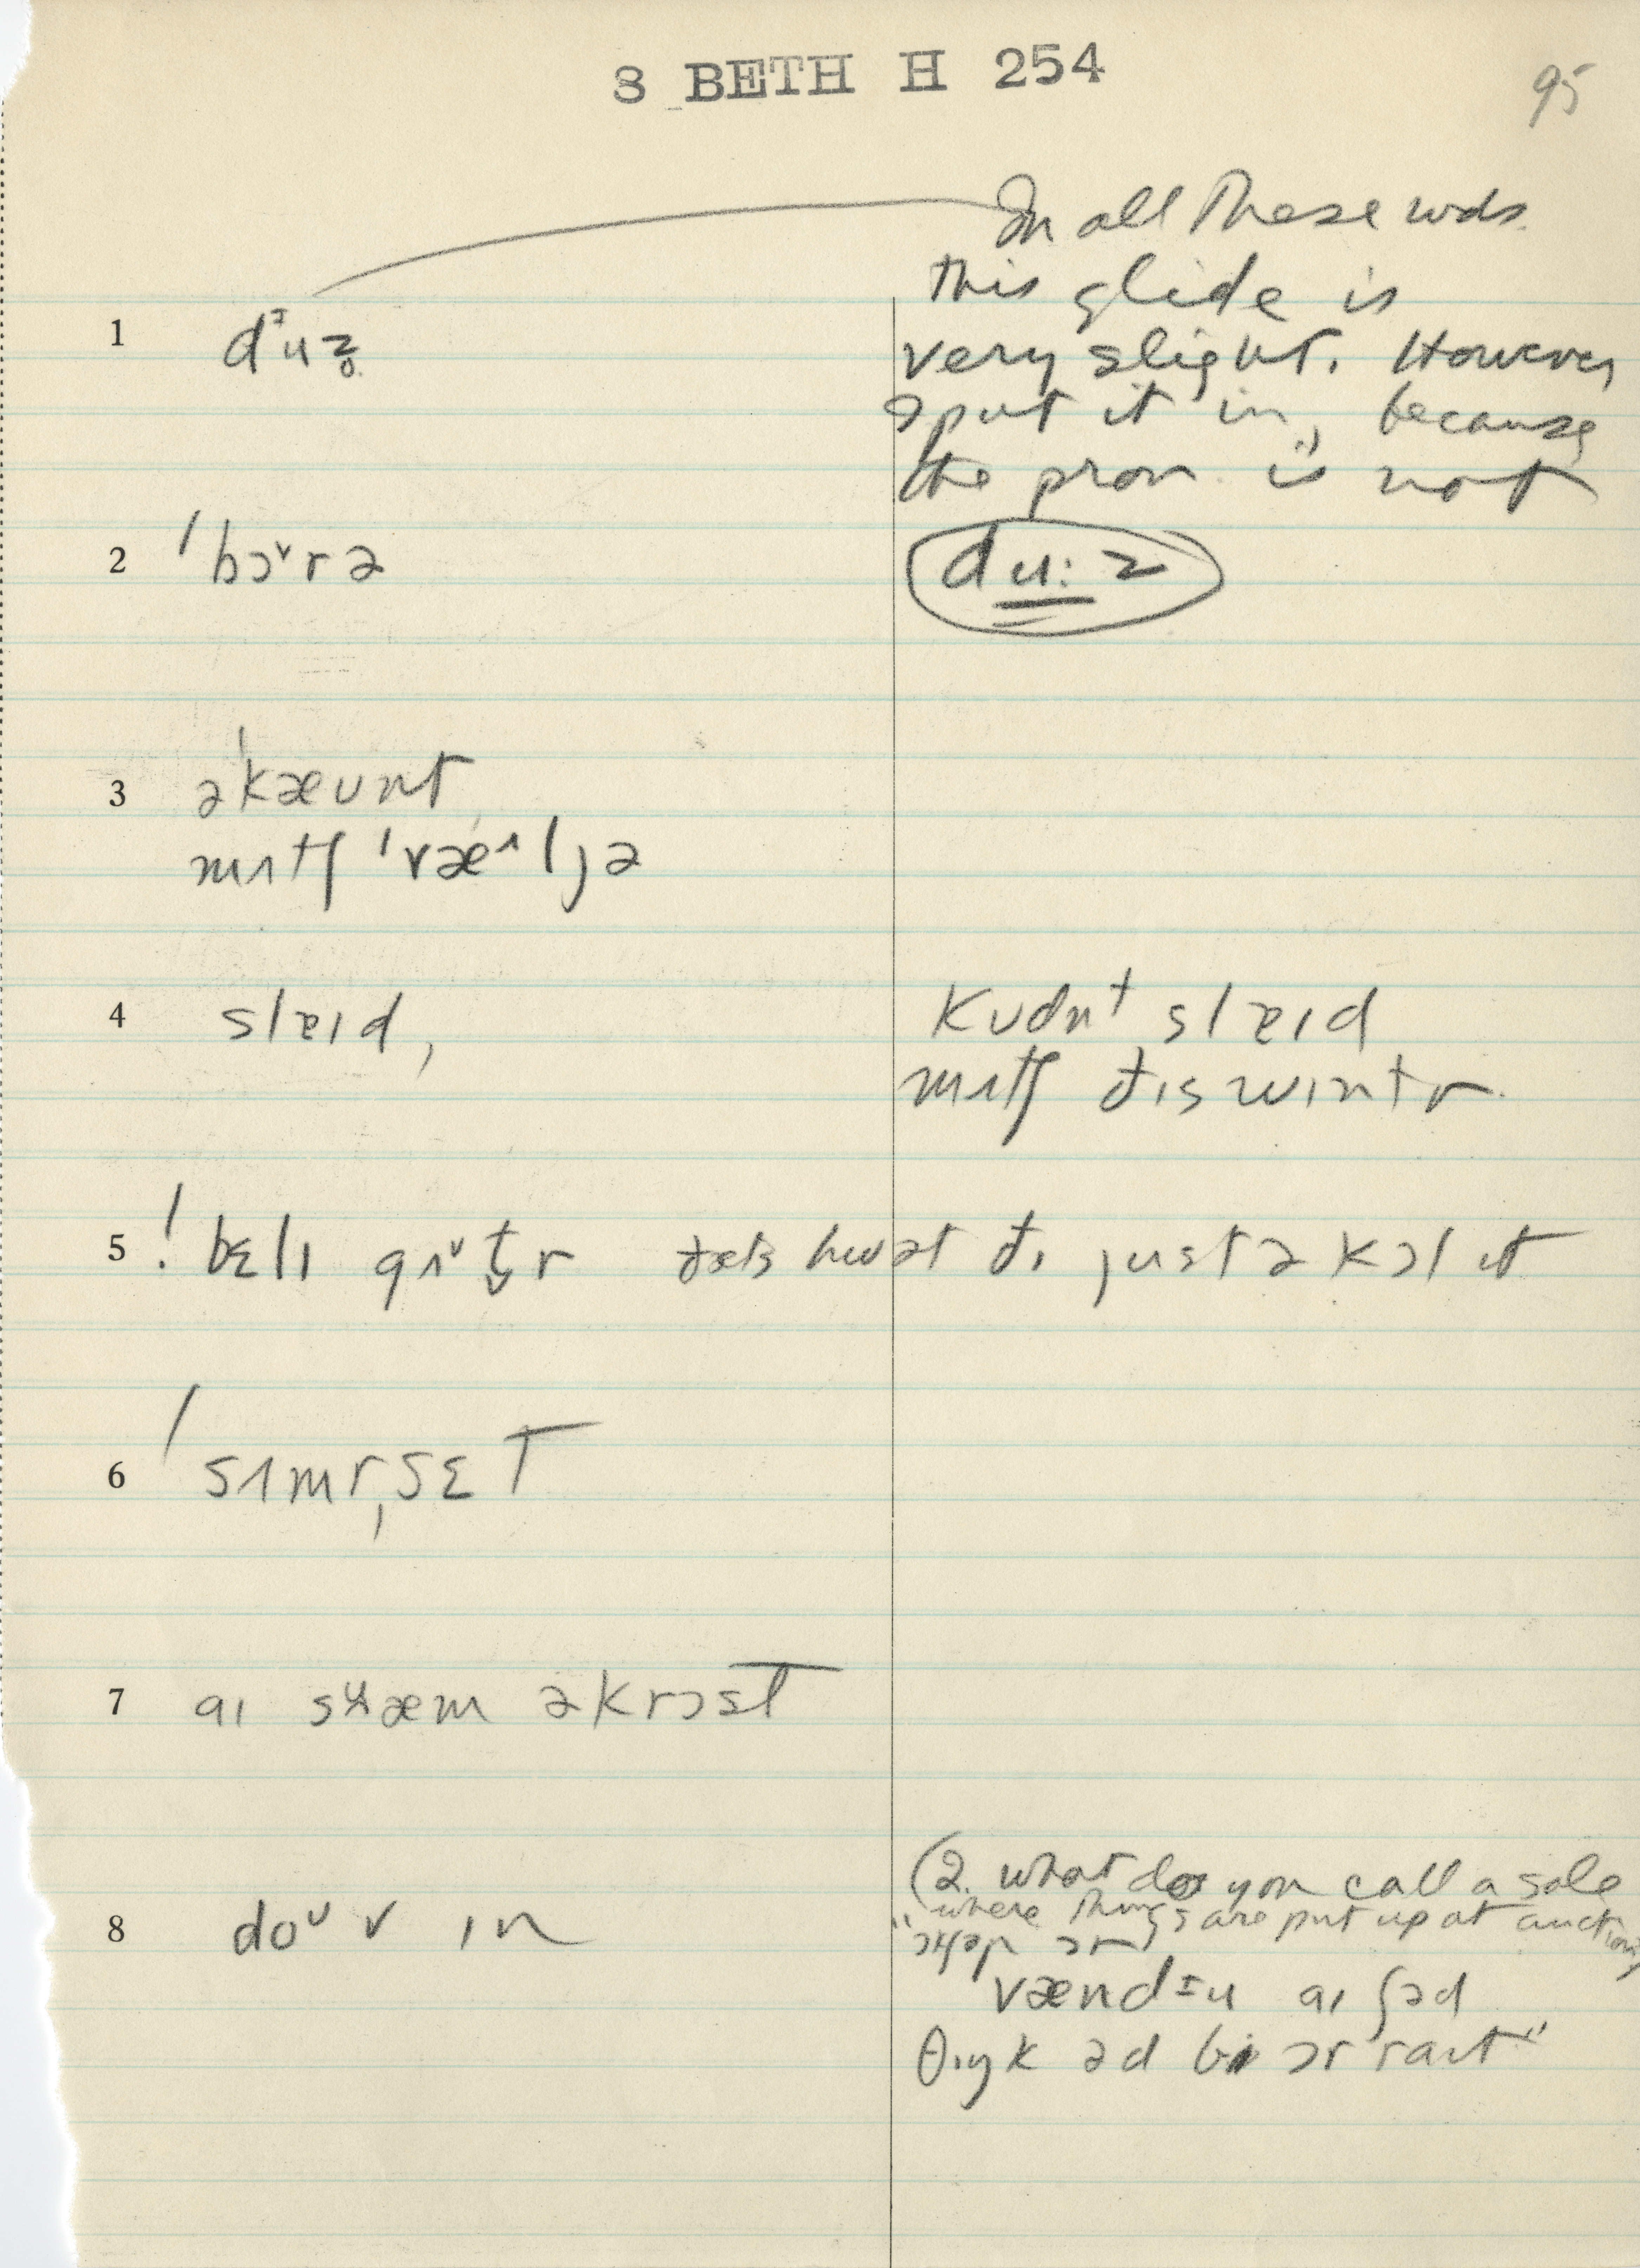 S BETH H 254
95
In all these wds.
this glide is
1 dᶦuz̥
very slight. However
I put it in, because
the pron. is not
2 ˈbɔ˅rə
du: z
3 əˈkæʊnt
mʌtʃ ˈvæ^ljə
4 slɐɪd,
kʊdn̩t slɐɪd
mʌtʃ ðɪs wɪntr
5 ! bɛlɪ gʌ˅t̬r ðæts hwət ðɪ justə kɔl ɪt
6 ˈsʌmrˌsɛT
7 aɪ sʉæm əkrɔst
8 do˅ v ɪn
(2. what do you call a sale
where things are put up at auction)
vændᶦu aɪ ʃəd
θɪŋk əd bi ɔr raɪt"